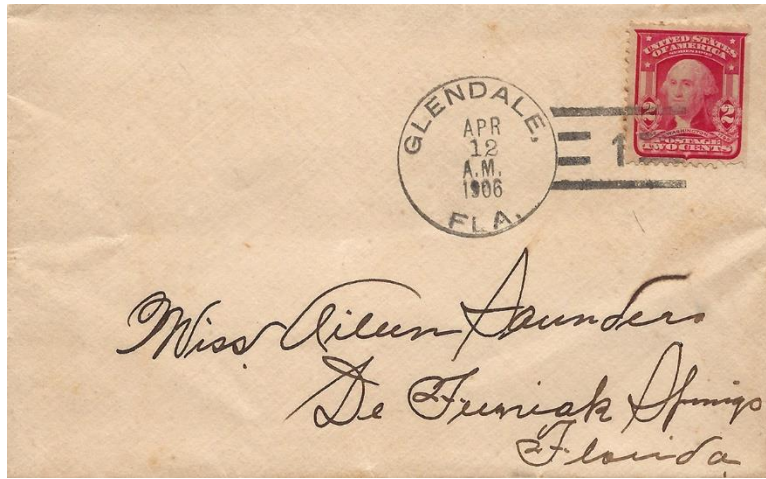 GLENDALE,
APR
12
A.M.
1906
FLA.
1
UNITED STATES
OF AMERICA
2 2
WASHINGTON
POSTAGE
TWO CENTS
Miss Aileen Saunders
De Funiak Springs
Florida